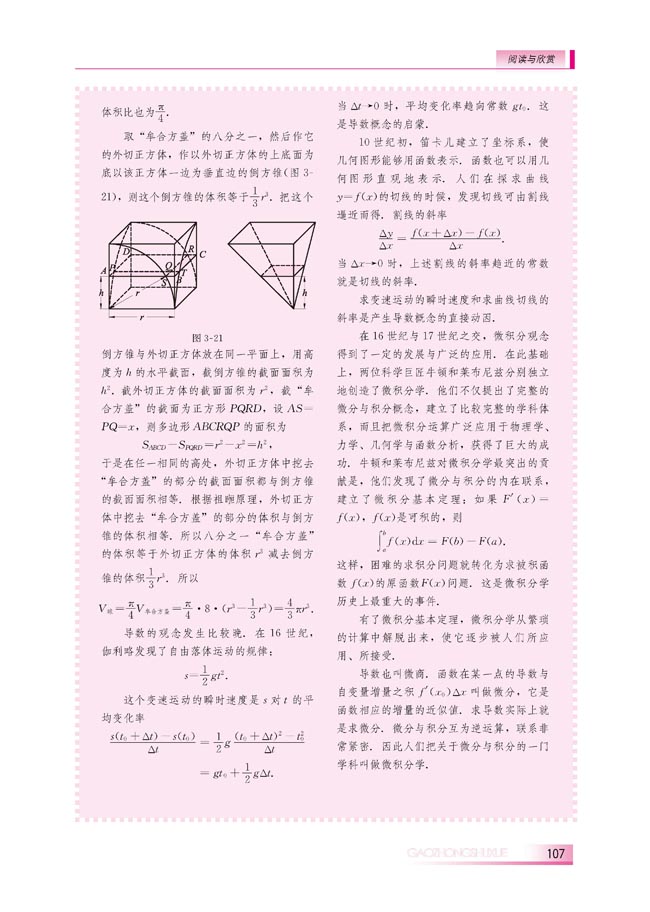 阅读与欣赏
体积比也为π/4.
取“牟合方盖”的八分之一，然后作它
的外切正方体，作以外切正方体的上底面为
底以该正方体一边为垂直边的倒方锥(图 3-
21)，则这个倒方锥的体积等于1/3 r³. 把这个
D R C Q A P S B T h r r h
图 3-21
倒方锥与外切正方体放在同一平面上，用高
度为 h 的水平截面，截倒方锥的截面面积为
h². 截外切正方体的截面面积为 r²，截“牟
合方盖”的截面为正方形 PQRD，设 AS=
PQ=x，则多边形 ABCRQP 的面积为
S_ABCD－S_PQRD=r²－x²=h²，
于是在任一相同的高处，外切正方体中挖去
“牟合方盖”的部分的截面面积都与倒方锥
的截面面积相等. 根据祖暅原理，外切正方
体中挖去“牟合方盖”的部分的体积与倒方
锥的体积相等. 所以八分之一“牟合方盖”
的体积等于外切正方体的体积 r³ 减去倒方
锥的体积1/3 r³. 所以
V球=π/4 V牟合方盖=π/4·8·(r³－1/3 r³)=4/3 πr³.
导数的观念发生比较晚. 在 16 世纪，
伽利略发现了自由落体运动的规律：
s=1/2 gt².
这个变速运动的瞬时速度是 s 对 t 的平
均变化率
(s(t₀+Δt)－s(t₀))/Δt = 1/2 g ((t₀+Δt)²－t₀²)/Δt
= gt₀+1/2 gΔt.
当 Δt→0 时，平均变化率趋向常数 gt₀. 这
是导数概念的启蒙.
10 世纪初，笛卡儿建立了坐标系，使
几何图形能够用函数表示. 函数也可以用几
何图形直观地表示. 人们在探求曲线
y=f(x)的切线的时候，发现切线可由割线
逼近而得. 割线的斜率
Δy/Δx = (f(x+Δx)－f(x))/Δx.
当 Δx→0 时，上述割线的斜率趋近的常数
就是切线的斜率.
求变速运动的瞬时速度和求曲线切线的
斜率是产生导数概念的直接动因.
在 16 世纪与 17 世纪之交，微积分观念
得到了一定的发展与广泛的应用. 在此基础
上，两位科学巨匠牛顿和莱布尼兹分别独立
地创造了微积分学. 他们不仅提出了完整的
微分与积分概念，建立了比较完整的学科体
系，而且把微积分运算广泛应用于物理学、
力学、几何学与函数分析，获得了巨大的成
功. 牛顿和莱布尼兹对微积分学最突出的贡
献是，他们发现了微分与积分的内在联系，
建立了微积分基本定理：如果 F′(x)=
f(x)，f(x)是可积的，则
∫ₐᵇ f(x)dx = F(b)－F(a).
这样，困难的求积分问题就转化为求被积函
数 f(x)的原函数F(x)问题. 这是微积分学
历史上最重大的事件.
有了微积分基本定理，微积分学从繁琐
的计算中解脱出来，使它逐步被人们所应
用、所接受.
导数也叫微商. 函数在某一点的导数与
自变量增量之积 f′(x₀)Δx 叫做微分，它是
函数相应的增量的近似值. 求导数实际上就
是求微分. 微分与积分互为逆运算，联系非
常紧密. 因此人们把关于微分与积分的一门
学科叫做微积分学.
GAOZHONGSHUXUE 107